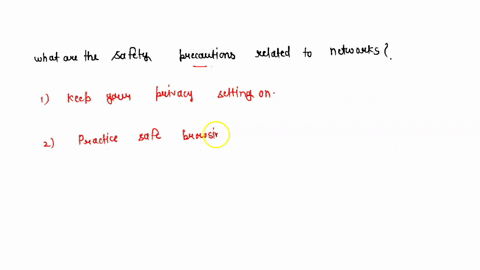 what are the safety precautions related to networks?.
1) Keep your privacy setting on.
2) Practice safe browsin